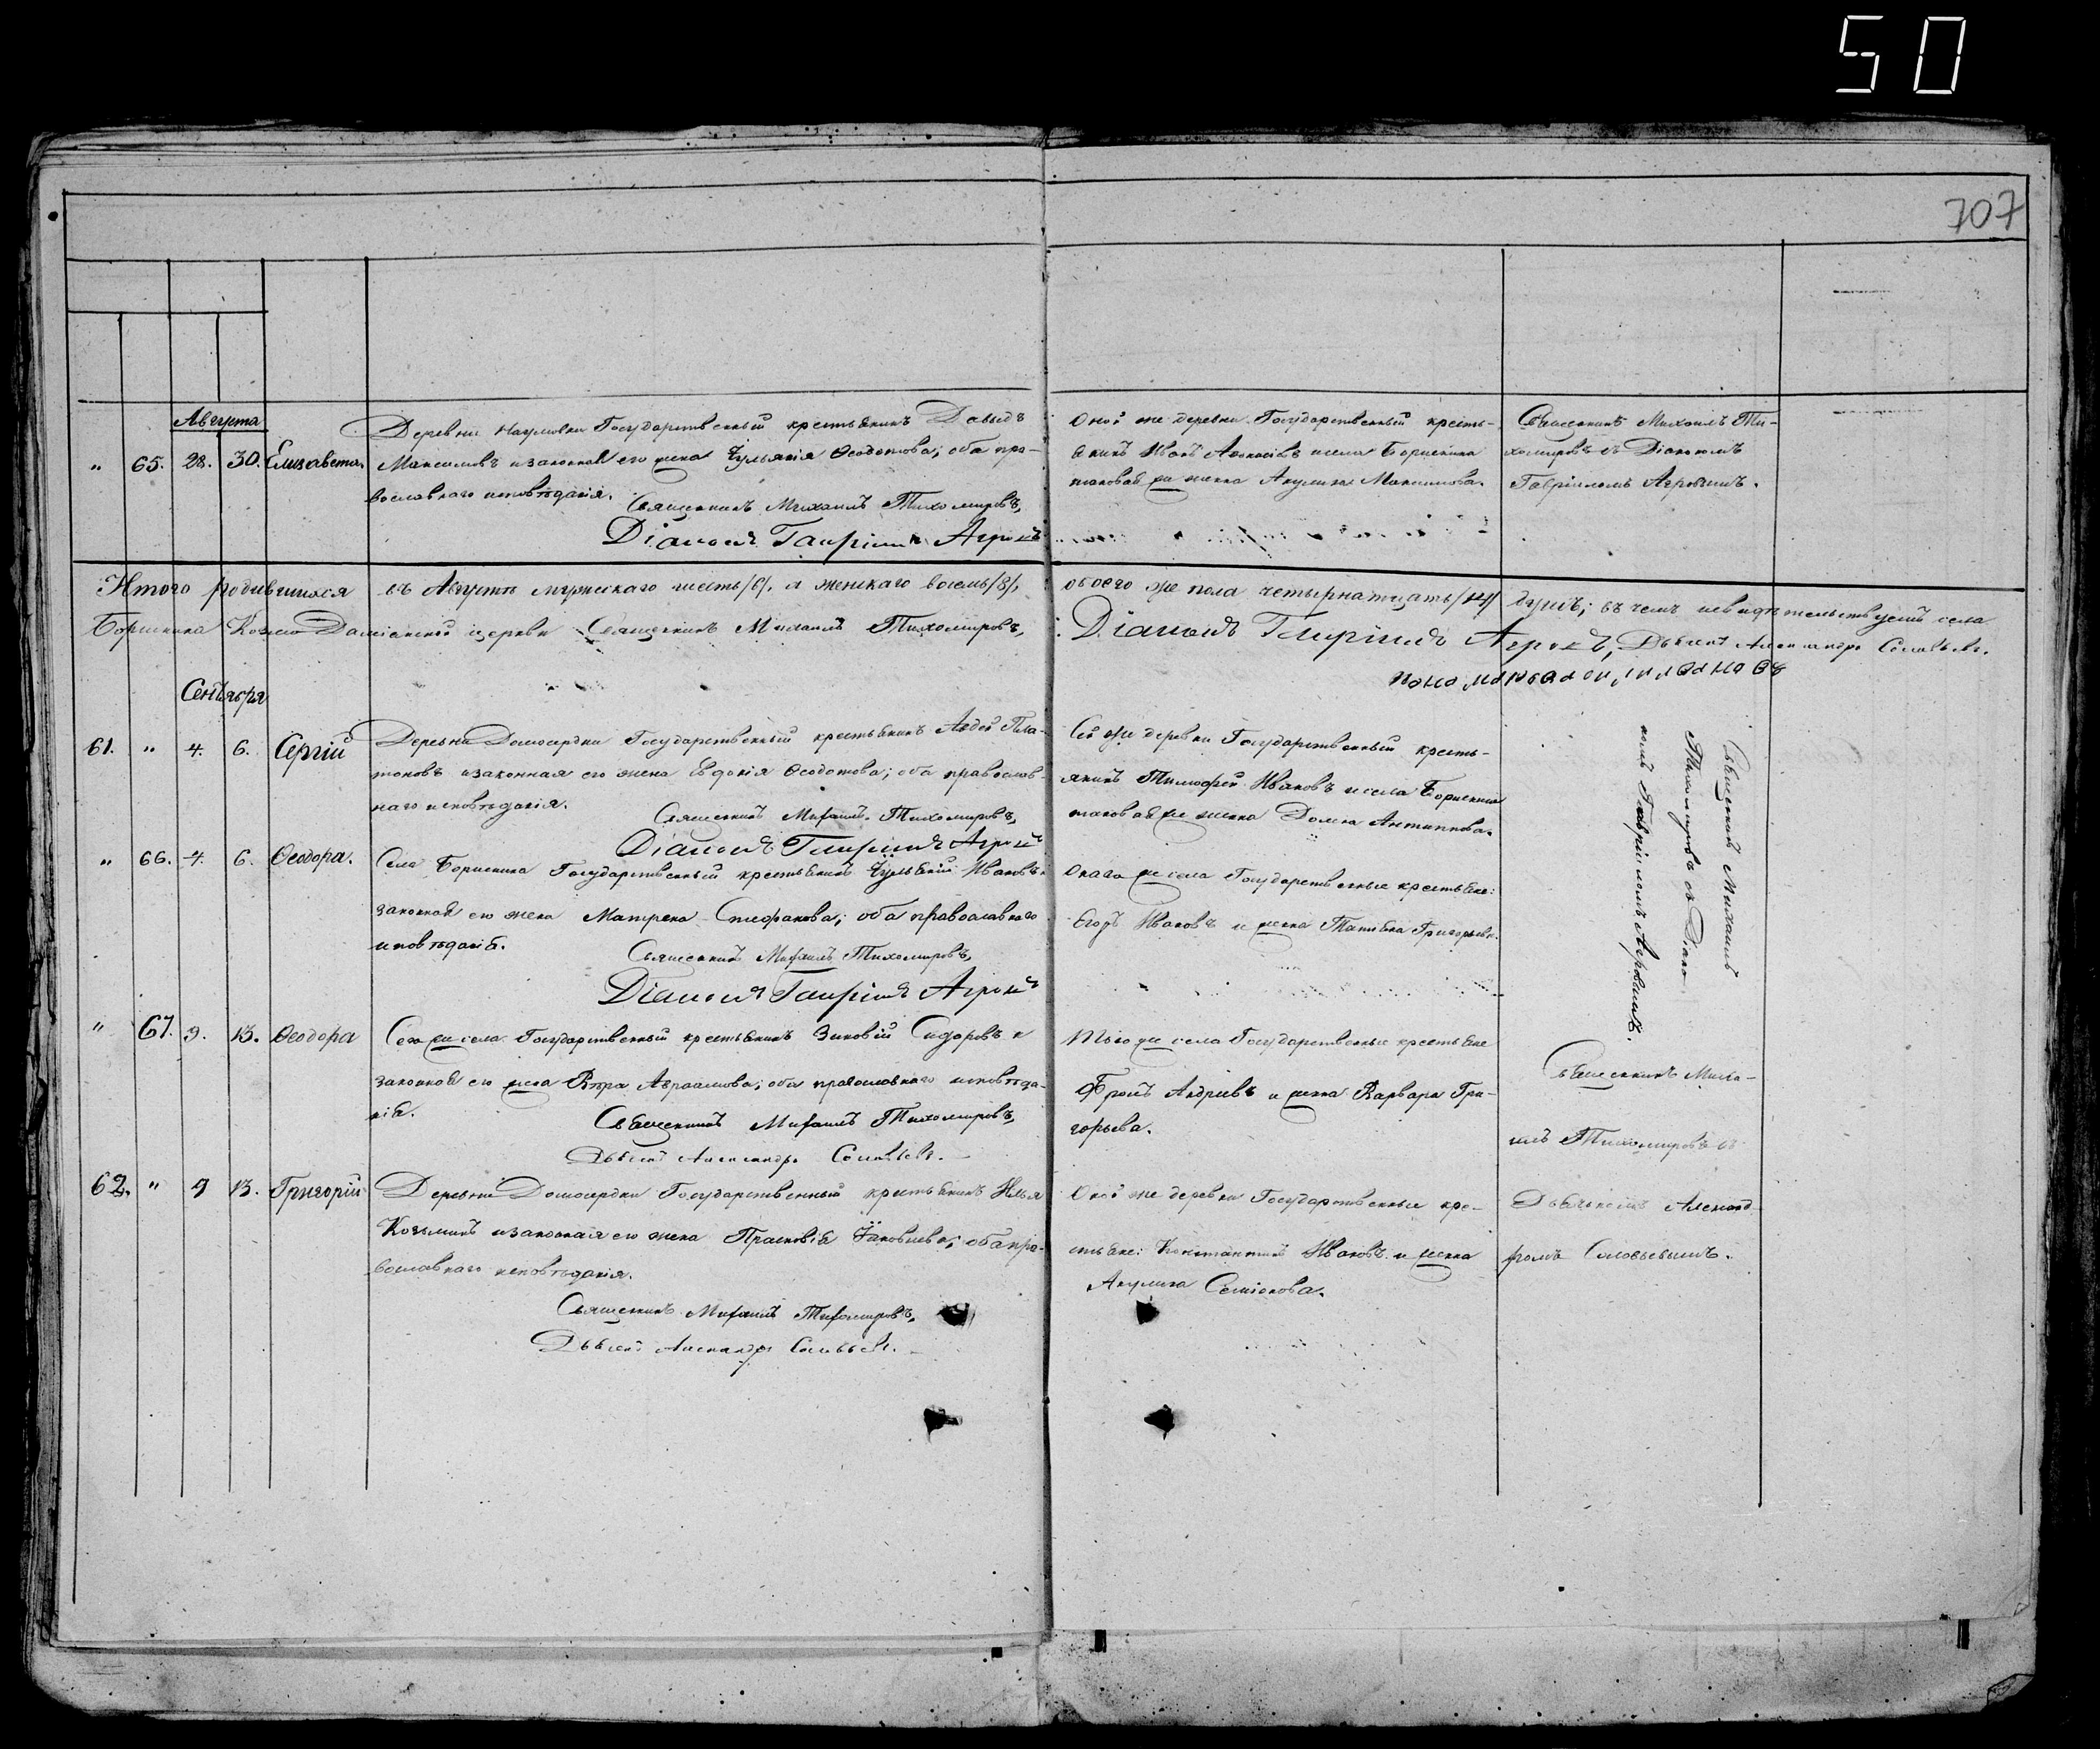 50
707
Августа
" 65. 28. 30. Елизавета.
Деревни Наумовки Государственный крестьянинъ Давыдъ
Максимовъ и законная его жена Иульянія Ѳеодотова; оба пра-
вославнаго исповѣданія.
Священникъ Михаилъ Тихомировъ,
Діаконъ Гавріилъ Агровъ
Оной же деревни Государственный кресть-
янинъ Иванъ Аѳанасіевъ и села Борискина
таковая же женка Акулина Максимова.
Священникъ Михаилъ Ти-
хомировъ съ Діакономъ
Гавріиломъ Агровымъ.
Итого родившихся въ Августѣ мужескаго шесть /6/, а женскаго восемь /8/, обоего же пола четырнатцать /14/ душъ; въ чемъ и свидѣтельствуетъ села
Борискина Козмо Даміанской церкви Священникъ Михаилъ Тихомировъ, Діаконъ Гавріилъ Агровъ, Дьячекъ Александръ Соловьевъ.
Сентября
61. " 4. 6. Сергій
Деревни Домосердки Государственный крестьянинъ Авдей Пла-
тоновъ и законная его жена Евдокія Ѳеодотова; оба православ-
наго исповѣданія.
Священникъ Михаилъ Тихомировъ,
Діаконъ Гавріилъ Агровъ
Сей же деревни Государственный кресть-
янинъ Тимофей Ивановъ и села Борискина
таковая же женка Домна Антипова.
Священникъ Михаилъ
Тихомировъ съ Діако-
номъ Гавріиломъ Агровымъ.
" 66. 4. 6. Ѳеодора.
Села Борискина Государственный крестьянинъ Иульяній Ивановъ и
законная его жена Матрена Стефанова; оба православнаго
исповѣданія.
Священникъ Михаилъ Тихомировъ,
Діаконъ Гавріилъ Агровъ
Онаго же села Государственные крестьяне:
Егоръ Ивановъ и женка Татьяна Григорьева.
" 67. 9. 13. Ѳеодора
Сего же села Государственный крестьянинъ Зиновій Сидоровъ и
законная его жена Вѣра Авраамова; оба православнаго исповѣда-
нія.
Священникъ Михаилъ Тихомировъ,
Дьячекъ Александръ Соловьевъ.
Того же села Государственные крестьяне
Фролъ Андріевъ и женка Варвара Гри-
горьева.
Священникъ Миха-
илъ Тихомировъ съ
62. " 9 13. Григорій
Деревни Домосердки Государственный крестьянинъ Илья
Козьминъ и законная его жена Прасковія Иаковлева; оба пра-
вославнаго исповѣданія.
Священникъ Михаилъ Тихомировъ,
Дьячекъ Александръ Соловьевъ.
Оной же деревни Государственные кре-
стьяне: Константинъ Ивановъ и женка
Акулина Семіонова.
Дьячькомъ Александ-
ромъ Соловьевымъ.